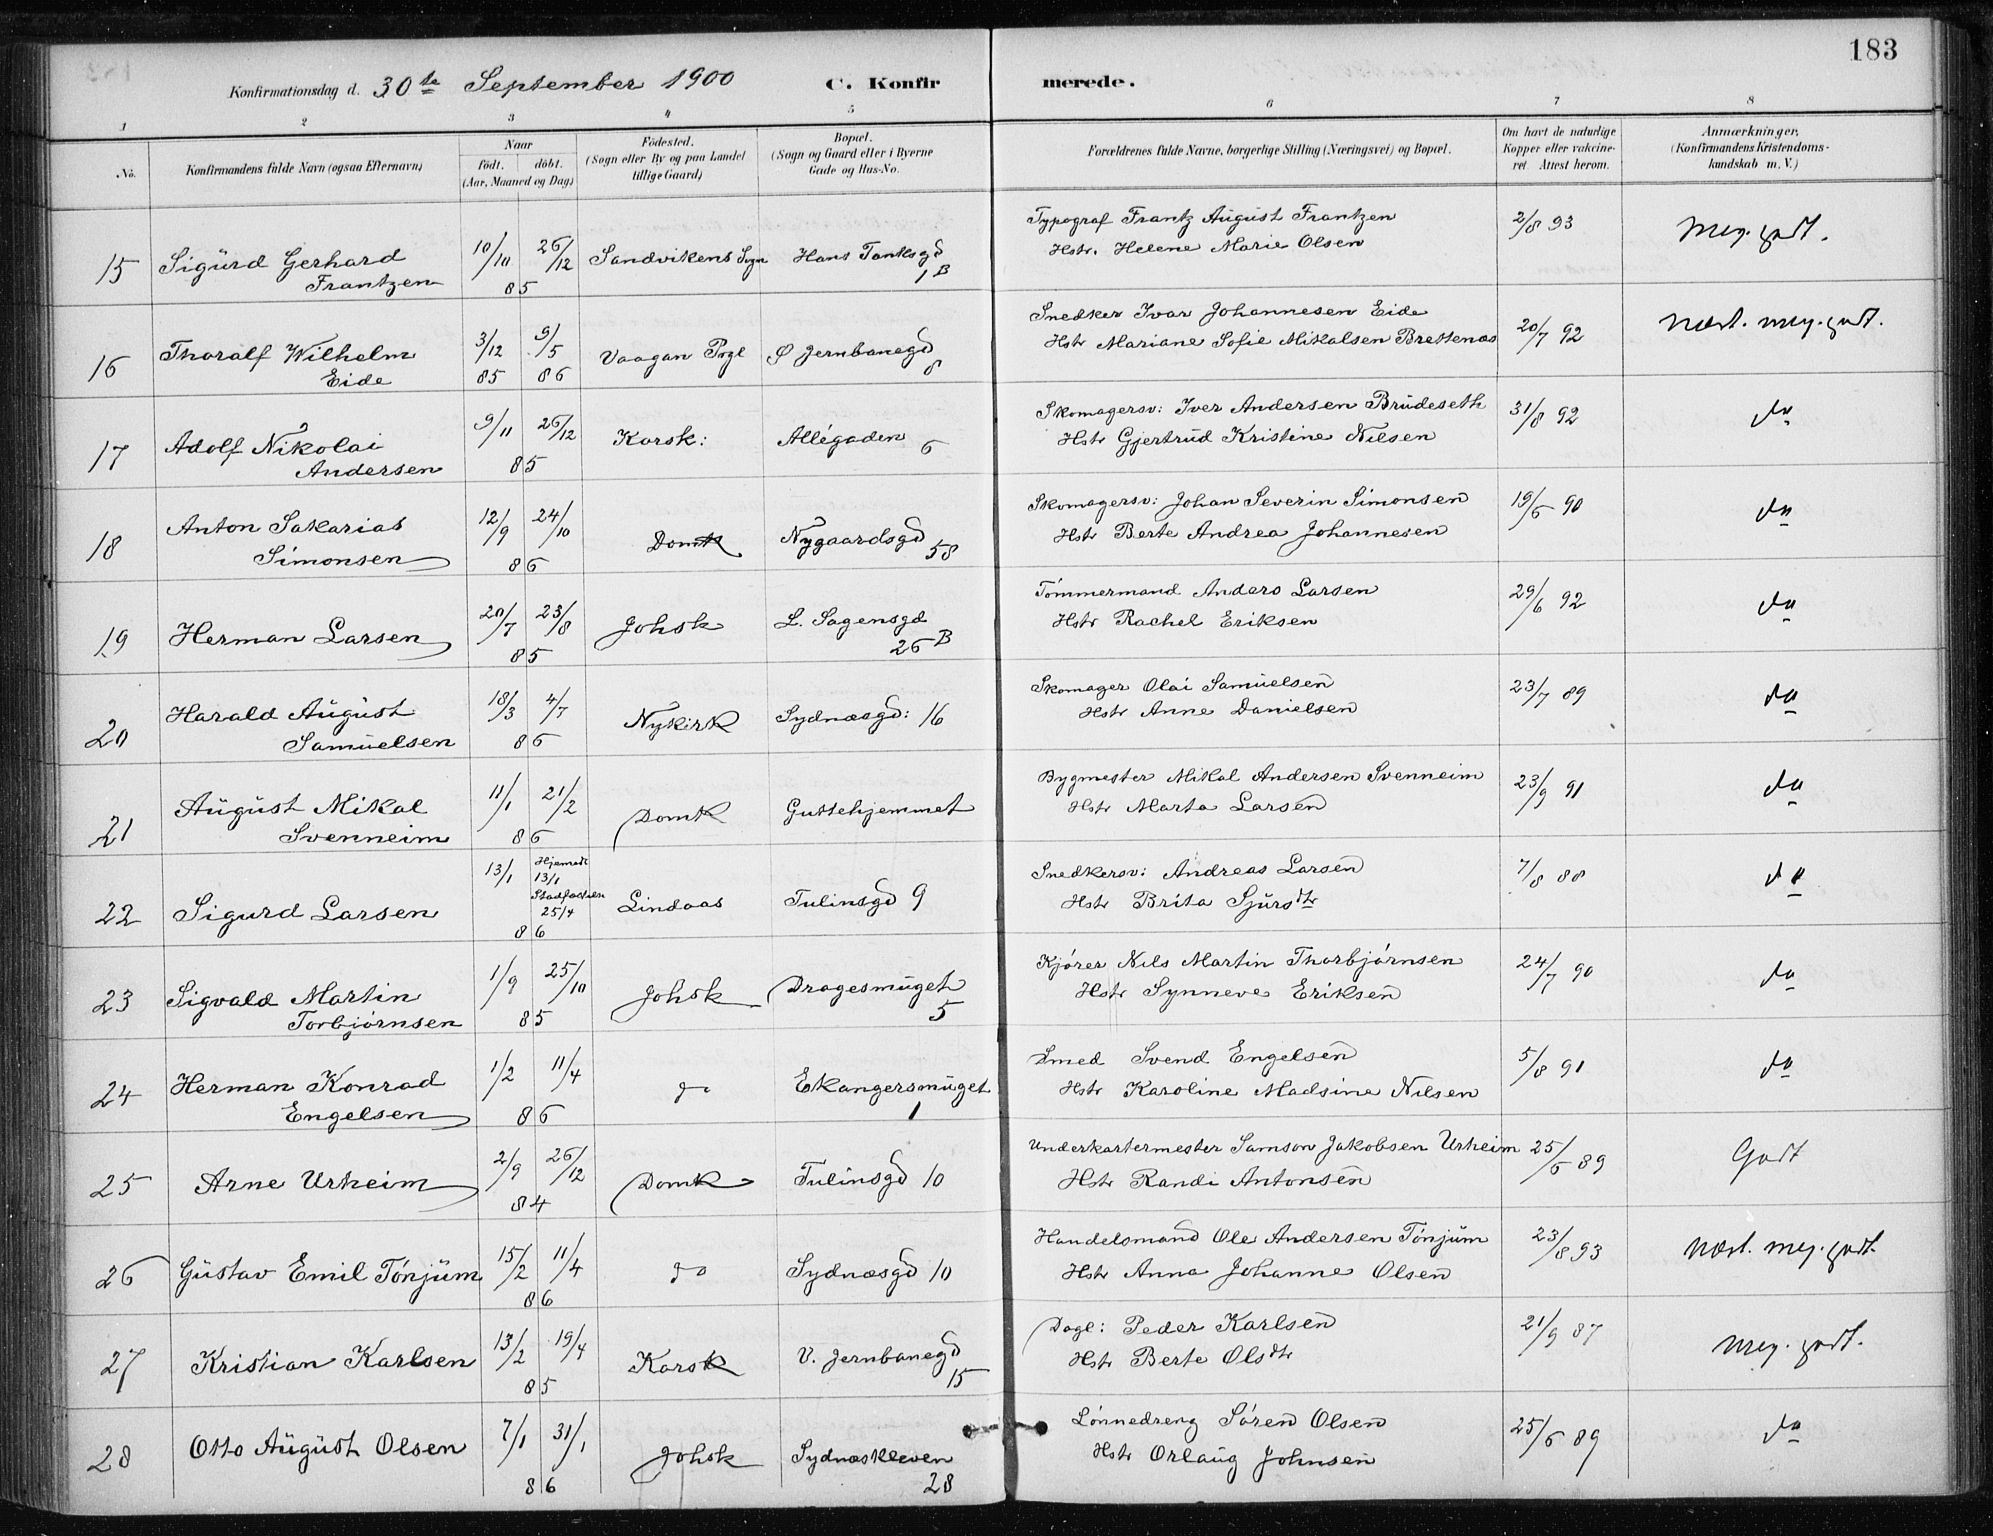 183
Konfirmationsdag d. 30te September 1900 C. Konfirmerede.
1 2 3 4 5 6 7 8
No. Konfirmandens fulde Navn (ogsaa Efternavn) Naar født. døbt. (Aar, Maaned og Dag) Födested. (Sogn eller By og paa Landet tillige Gaard) Bopæl. (Sogn og Gaard eller i Byerne Gade og Hus-No. Forældrenes fulde Navne, borgerlige Stilling (Næringsvei) og Bopæl. Om havt de naturlige Kopper eller vakcineret Attest herom. Anmærkninger, (Konfirmandens Kristendomskundskab m. V.)
15 Sigurd Gerhard Frantzen 10/10 26/12 85 Sandvikens Sogn Hans Tanksgd 1 B Typograf Frantz August Frantzen
Hstr. Helene Marie Olsen 2/8 93 Meg. godt.
16 Thoralf Wilhelm Eide 3/12 85 9/5 86 Vaagan Prgl Ø Jernbanegd 8 Snedker Ivar Johannesen Eide
Hstr Mariane Sofie Mikalsen Brettenæs 20/7 92 Næst. meg. godt.
17 Adolf Nikolai Andersen 9/11 26/12 85 Korsk: Allégaden 6 Skomagersv: Iver Andersen Brudeseth
Hstr Gjertrud Kristine Nilsen 31/8 92 do
18 Anton Sakarias Simonsen 12/9 24/10 86 Domk Nygaardsgd 58 Skomagersv: Johan Severin Simonsen
Hstr Berte Andrea Johannesen 19/6 90 do
19 Herman Larsen 20/7 23/8 85 Johsk L. Sagensgd 26 B Tømmermand Anders Larsen
Hstr Rachel Eriksen 29/6 92 do
20 Harald August Samuelsen 18/3 4/7 86 Nykirk Sydnæsgd: 16 Skomager Olai Samuelsen
Hstr Anne Danielsen 23/7 89 do
21 August Mikal Svenneim 11/1 21/2 86 Domk Guttehjemmet Bygmester Mikal Andersen Svenneim
Hstr Marta Larsen 23/9 91 do
22 Sigurd Larsen 13/1 Hjemdt 13/1 25/4 86 Lindaas Tulinsgd 9 Snedkersv: Andreas Larsen
Hstr Brita Sjursdtr 7/8 88 do
23 Sigvald Martin Torbjørnsen 1/9 25/10 85 Johsk Dragesmuget 5 Kjører Nils Martin Thorbjørnsen
Hstr Synneve Eriksen 24/7 90 do
24 Herman Konrad Engelsen 1/2 11/4 86 do Ekangersmuget 1 Smed Svend Engelsen
Hstr Karoline Madsine Nilsen 5/8 91 do
25 Arne Urheim 2/9 26/12 84 Domk Tulinsgd 10 Underkartermester Samson Jakobsen Urheim
Hstr Randi Antonsen 25/6 89 Godt
26 Gustav Emil Tønjum 15/2 11/4 86 do Sydnæsgd 10 Handelsmand Ole Andersen Tønjum
Hstr Anna Johanne Olsen 23/8 93 Næst. meg. godt.
27 Kristian Karlsen 13/2 19/4 85 Korsk V. Jernbanegd 15 Dagl: Peder Karlsen
Hstr Berte Olsdtr 21/9 87 Meg. godt.
28 Otto August Olsen 7/1 31/1 86 Johsk Sydnæskleven 28 Lønnedreng Søren Olsen
Hstr Orlaug Johnsen 25/6 89 do